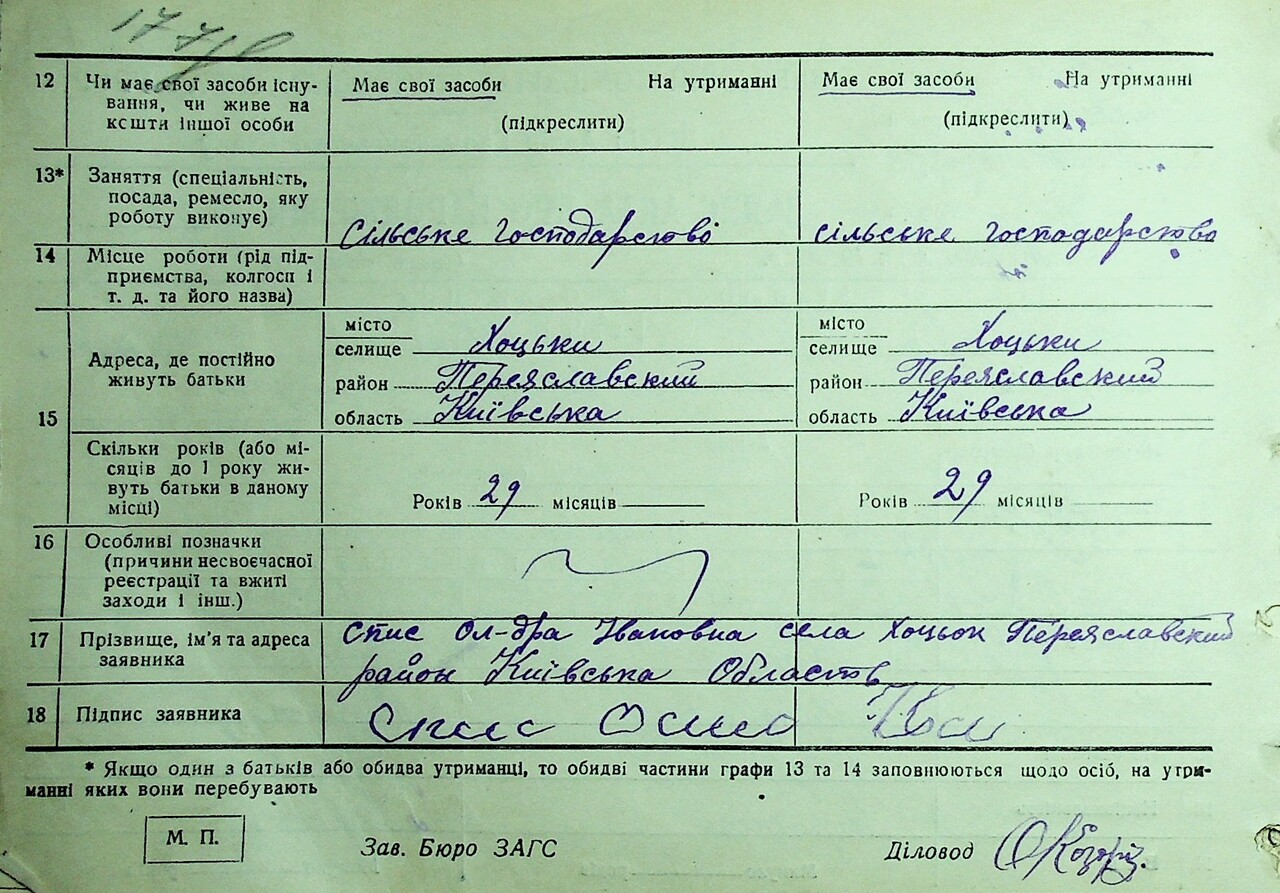 12 Чи має свої засоби існу- Має свої засоби На утриманні Має свої засоби На утриманні
вання, чи живе на (підкреслити) (підкреслити)
кошти іншої особи
13* Заняття (спеціальність,
посада, ремесло, яку
роботу виконує) Сільське господарство сільське господарство
14 Місце роботи (рід під-
приємства, колгосп і
т. д. та його назва)
15 Адреса, де постійно
живуть батьки
місто місто
селище Хоцьки селище Хоцьки
район Переяславский район Переяславский
область Київська область Київська
Скільки років (або мі-
сяців до 1 року жи-
вуть батьки в даному
місці)
Років 29 місяців Років 29 місяців
16 Особливі позначки
(причини несвоєчасної
реєстрації та вжиті
заходи і інш.)
17 Прізвище, ім'я та адреса
заявника
Спис Ол-дра Івановна села Хоцьок Переяславский
район Київська Область
18 Підпис заявника Спис
* Якщо один з батьків або обидва утриманці, то обидві частини графи 13 та 14 заповнюються щодо осіб, на утри-
манні яких вони перебувають
М. П.
Зав. Бюро ЗАГС Діловод